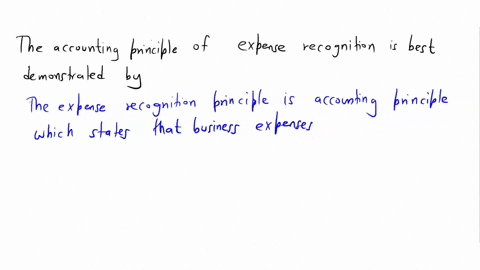 The accounting principle of expense recognition is best
demonstraled by
The expense recognition principle is accounting principle
which states that business expenses